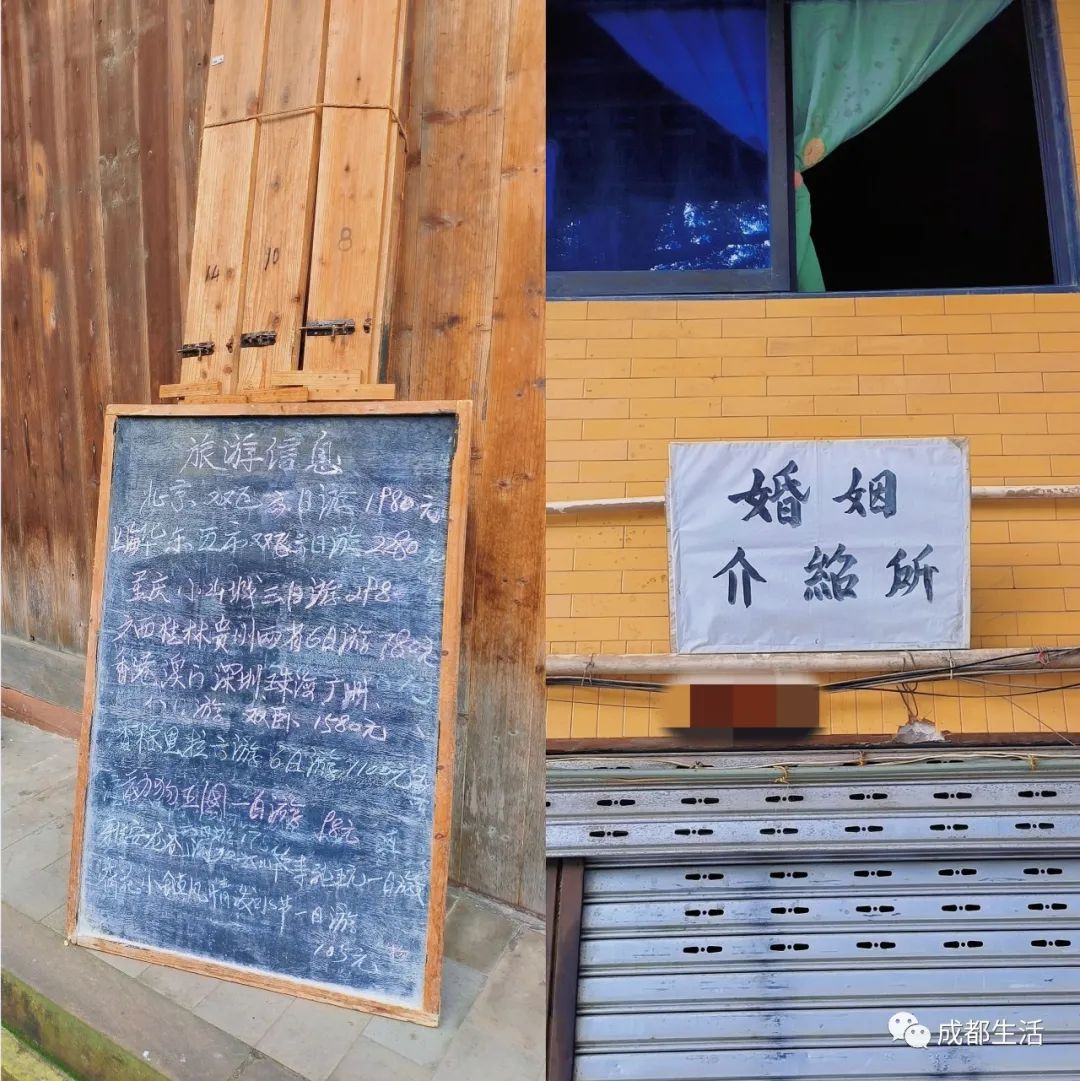 14 10 8
旅游信息
北京双飞 日游1980元
上海华东五市双飞六日游2280元
重庆小 城三日游
广西桂林贵州四省6日游780元
香港澳门深圳珠海广州、
游 双卧 1580元
香格里拉 游6日游1100元
动物 园一日游 98元
一日游
小镇风情 水节一日游
105元
婚姻
介绍所
成都生活